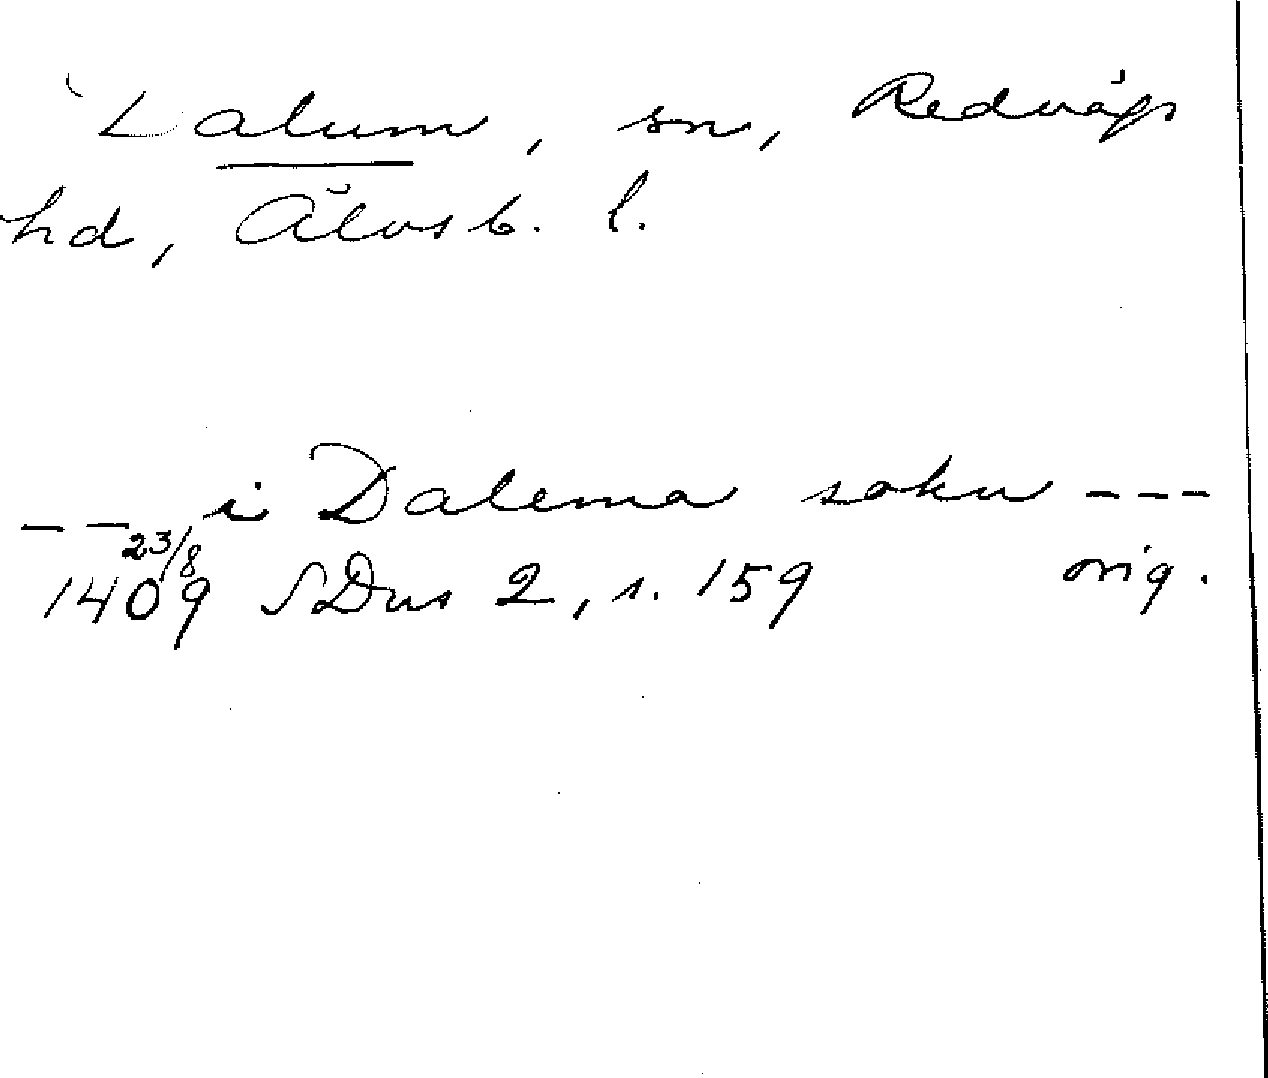 Dalum, sn, Redvägs
hd, Älvsb. l.
-- i Dalema sokn ---
23/8 1409 SDns 2, s. 159 orig.